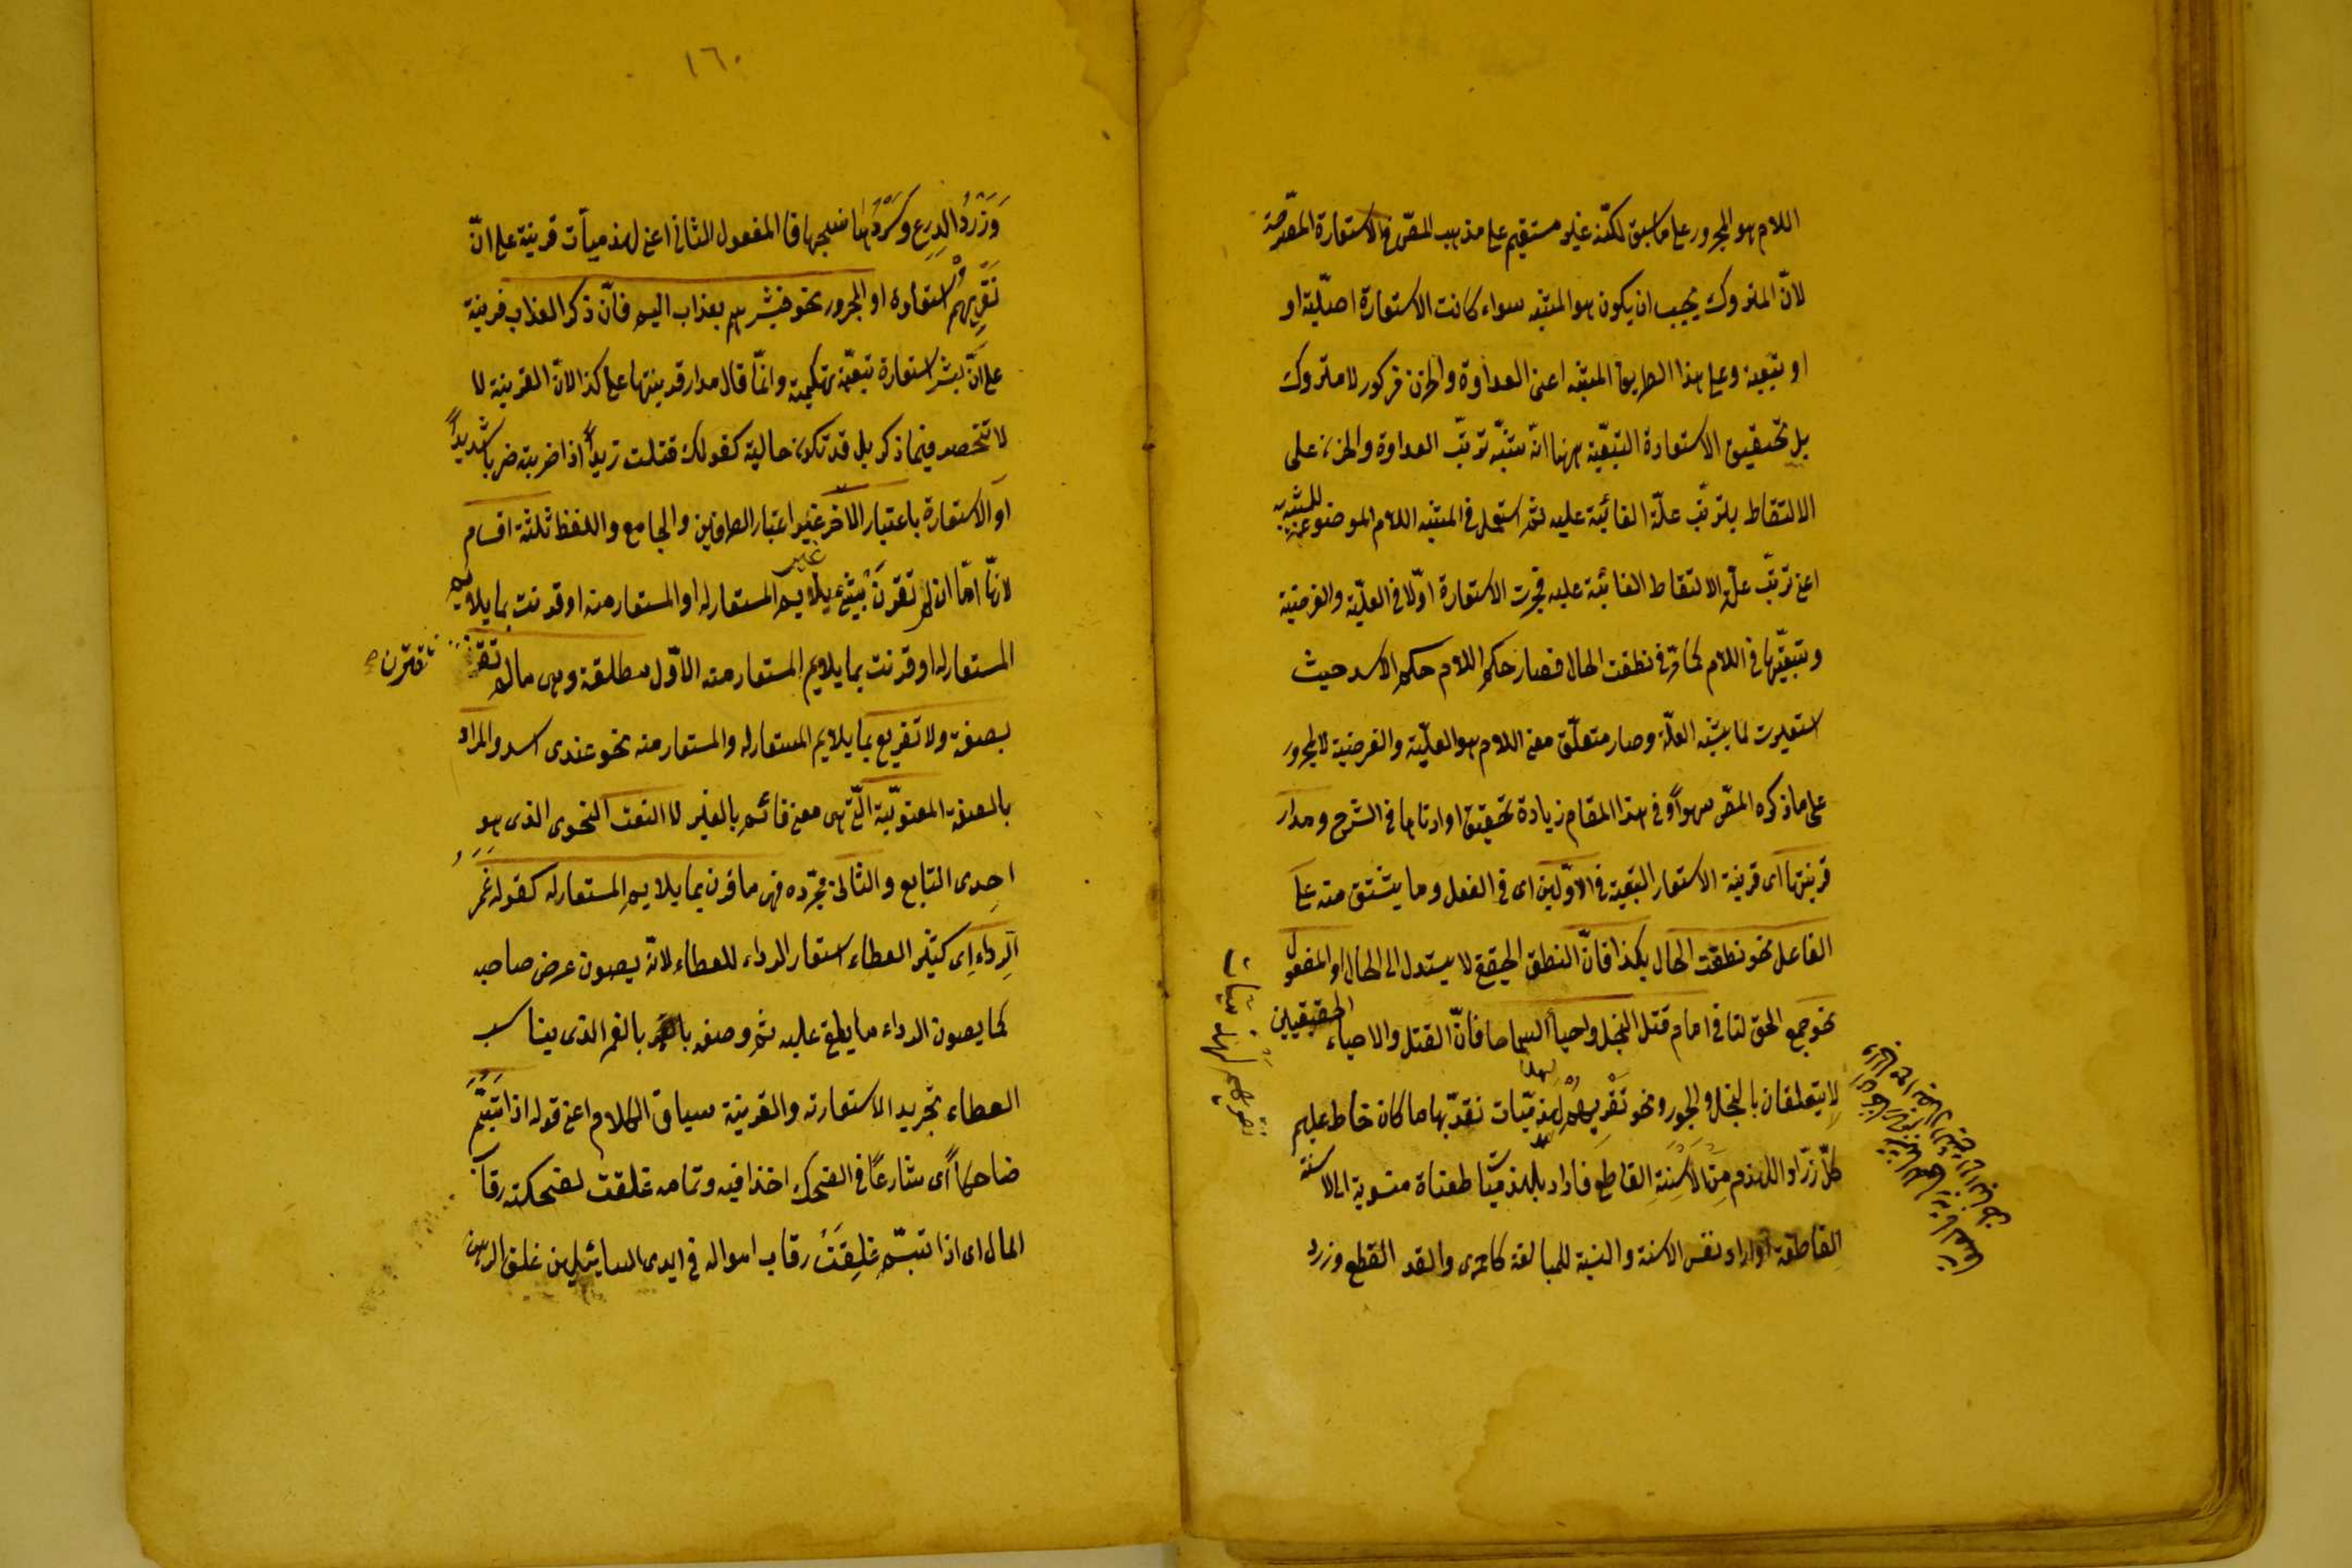 اللام هو المجرور على ما سبق لكنّه غير مستقيم على مذهب المصّ فى الاستعارة المصّرحة
لانّ المتروك يجب ان يكون هو المشبّه سواء كانت الاستعارة اصليّة او
او تبعية وعلى هذا الطريق المشبّه اعنى العداوة والحزن مذكور لا متروك
بل تحقيق الاستعارة التبعيّة ههنا انّه شبّه ترتّب العداوة والحزن على
الالتقاط بترتّب علّة الغائيّة عليه ثم استعمل فى المشبّه اللام الموضوعة للمشبّه به
اعنى ترتّب علّة الالتقاط الغائيّة عليه فجرت الاستعارة اوّلا فى العليّة والغرضيّة
وتبعيّتها فى اللام كما مرّ فى نطقت الحال فصار حكم اللام حكم الاسد حيث
استعيرت لما يشبه العلّة وصار متعلّق معنى اللام هو العليّة والغرضيّة لا المجرور
على ما ذكره المصّ سهواً وفى هذا المقام زيادة تحقيق اوردناها فى الشرح ومدار
قرينتها اى قرينة الاستعارة التبعيّة فى الاوّلين اى فى الفعل وما يشتق منه على
الفاعل نحو نطقت الحال بكذا فانّ النطق الحقيقى لا يسند الى الحال او المفعول
نحو جمع الحق لنا فى امام قتل البخل واحيا السماحا فانّ القتل والاحياء الحقيقيين
لا يتعلقان بالبخل والجود ونحو نَقْرِيهُمُ لهذميّات نقدّ بها ما كان خاط عليهم
كلّ زرّاد اللهذم مِنَ الاَسِنّةِ القاطع فاراد بلهذميّات طعنات منسوبة الى الاسنّة
القاطعة او اراد نفس الاسنة والنسبة للمبالغة كاحمرى والقد القطع وزرد
نقريهم لهذميّات
١٦٠
وَزَرَدُ الدِرعِ وسَرْدُها نسجها فا المفعول الثانى اعنى لهذميّات قرينة على انّ
نَقْرِيهُم استعارة او المجرور نحو فبشّرهم بعذاب اليم فانّ ذكر العذاب قرينة
على انّ بشّر استعارة تبعيّة تهكميّة وانّما قال مدار قرينتها على كذا لانّ القرينة لا
لا تنحصر فيما ذكر بل قد تكون حالية كقولك قتلت زيداً اذا ضربته ضرباً شديداً
او الاستعارة باعتبار الآخر غير اعتبار الطرفين والجامع واللفظ ثلثة اقسام
لانّها امّا ان لم تقرن بشىء يلايم المستعار له او المستعار منه او قرنت بما يلايم
المستعار له او قرنت بما يلايم المستعار منه الاوّل مطلقة وهى ما لم تقترن
تقترن صح
بصفة ولا تفريع بما يلايم المستعار له والمستعار منه نحو عندى اسد والمراد
بالصفة المعنويّة الّتى هى معنى قائم بالغير لا النعت النحوى الذى هو
احدى التابع والثانى مجرّدة وهى ما قرن بما يلايم المستعار له كقوله غَمْرُ
الرداء اى كثير العطاء استعار الرداء للعطاء لانّه يصون عرض صاحبه
كما يصون الرداء ما يلقى عليه ثم وصفه بالغمر الذى يناسب
العطاء تجريد الاستعارة والقرينة سياق الكلام اعنى قوله اذا تَبَسَّمَ
ضاحكاً اى شارعاً فى الضحك اخذا فيه وتمامه غلقت لضحكته رقاب
المال اى اذا تبسّم غلِقَتْ رقاب امواله فى ايدى السائلين غلق الرهن